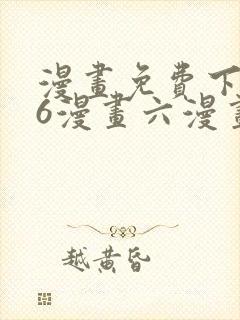 漫畫免費下
6漫畫六漫畫
越黄昏